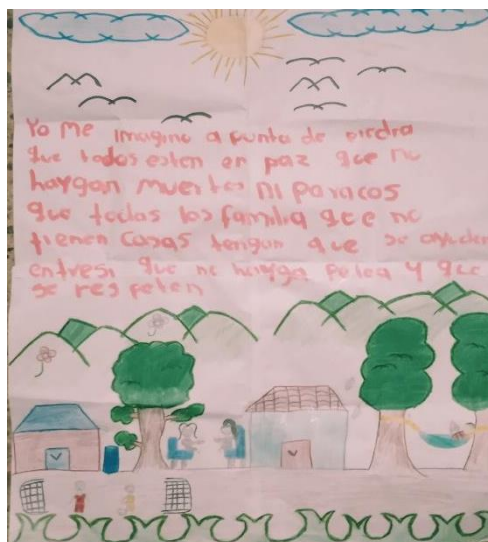 Yo me imagino a punta de piedra
que todos esten en paz que no
haygan muertos ni paracos
que todas las familia que no
tienen casas tengan que se ayuden
entresi que no hayga pelea y que
se respeten